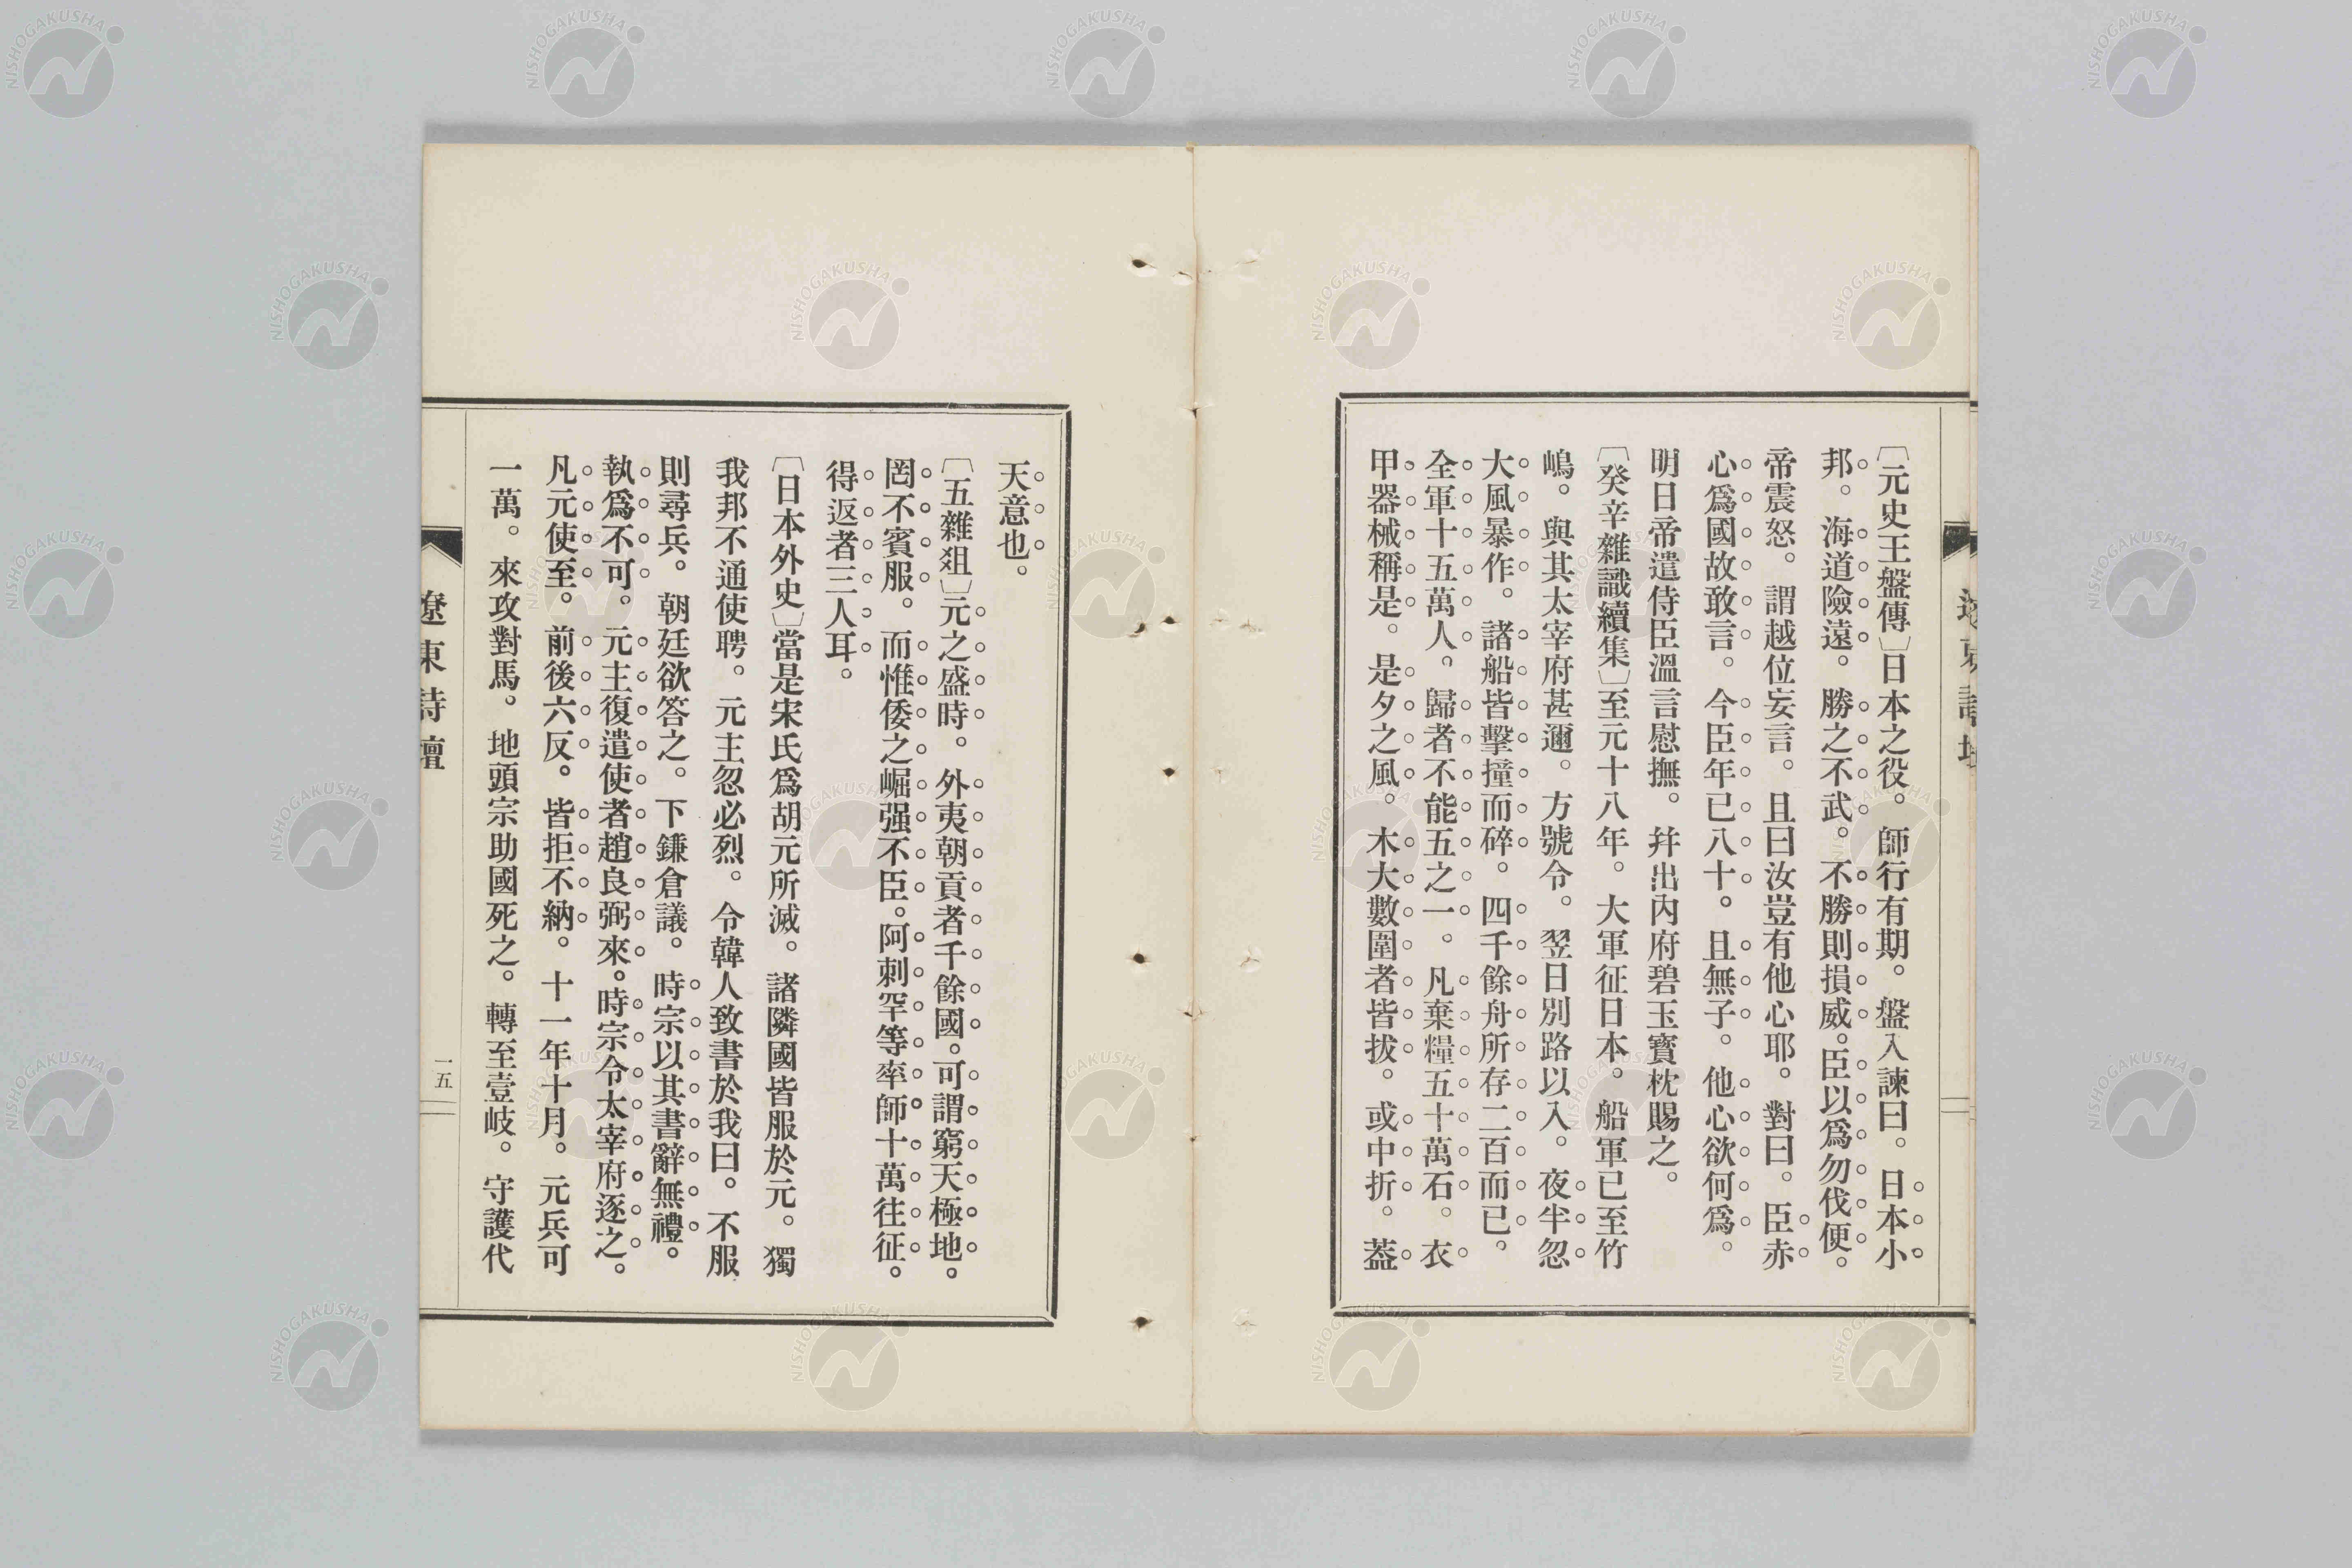 〔元史王盤傳〕日本之役。師行有期。盤入諫曰。日本小
邦。海道險遠。勝之不武。不勝則損威。臣以爲勿伐便。
帝震怒。謂越位妄言。且曰汝豈有他心耶。對曰。臣赤
心爲國故敢言。今臣年已八十。且無子。他心欲何爲。
明日帝遣侍臣溫言慰撫。幷出內府碧玉寶枕賜之。
〔癸辛雜識續集〕至元十八年。大軍征日本。船軍已至竹
嶋。與其太宰府甚邇。方號令。翌日別路以入。夜半忽
大風暴作。諸船皆擊撞而碎。四千餘舟所存二百而已。
全軍十五萬人。歸者不能五之一。凡棄糧五十萬石。衣
甲器械稱是。是夕之風。木大數圍者皆拔。或中折。葢
天意也。
〔五雜爼〕元之盛時。外夷朝貢者千餘國。可謂窮天極地。
罔不賓服。而惟倭之崛强不臣。阿剌罕等率師十萬往征。
得返者三人耳。
〔日本外史〕當是宋氏爲胡元所滅。諸隣國皆服於元。獨
我邦不通使聘。元主忽必烈。令韓人致書於我曰。不服
則尋兵。朝廷欲答之。下鎌倉議。時宗以其書辭無禮。
執爲不可。元主復遣使者趙良弼來。時宗令太宰府逐之。
凡元使至。前後六反。皆拒不納。十一年十月。元兵可
一萬。來攻對馬。地頭宗助國死之。轉至壹岐。守護代
遼東詩壇
一五
NISHOGAKUSHA